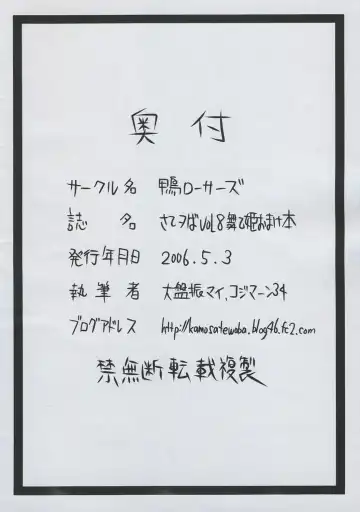 奥付
サークル名 鴨ローサーズ
誌名 さてヲばvol.8舞乙姫おまけ本
発行年月日 2006.5.3
執筆者 大盤振マイ、コジマーン34
ブログアドレス http://kamosatewoba.blog46.fc2.com
禁無断転載複製